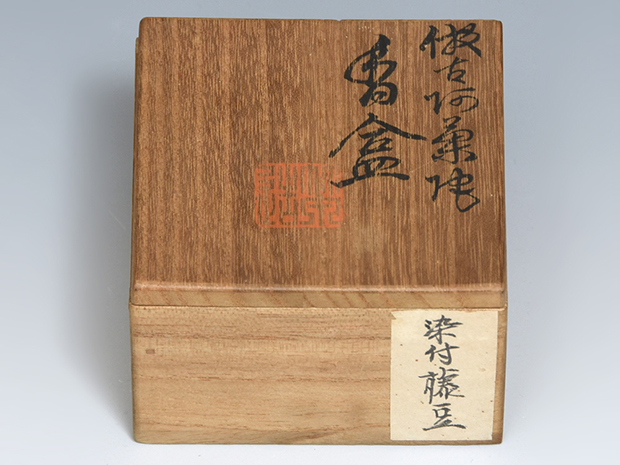 倣古阿蘭陀
香盒
染付藤豆